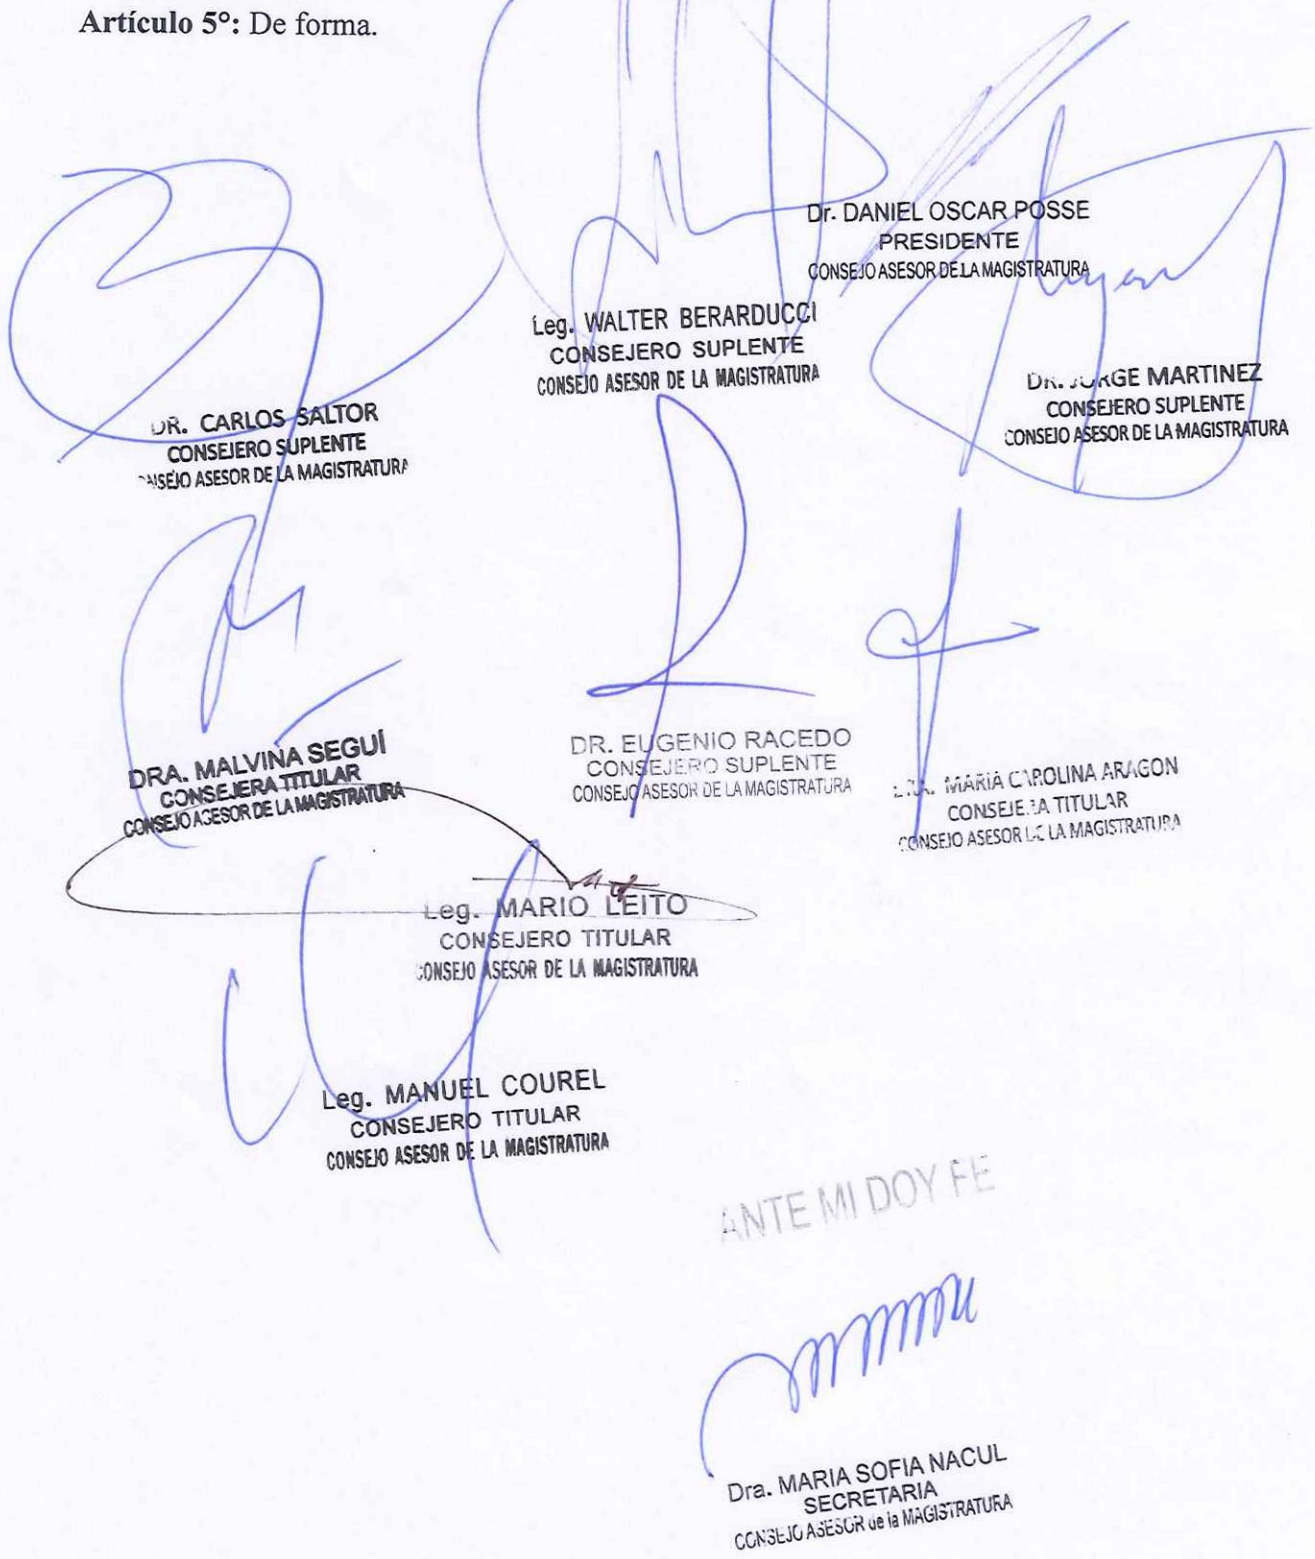 Artículo 5°: De forma.
Dr. DANIEL OSCAR POSSE
PRESIDENTE
CONSEJO ASESOR DE LA MAGISTRATURA
Leg. WALTER BERARDUCCI
CONSEJERO SUPLENTE
CONSEJO ASESOR DE LA MAGISTRATURA
DR. JORGE MARTINEZ
CONSEJERO SUPLENTE
CONSEJO ASESOR DE LA MAGISTRATURA
DR. CARLOS SALTOR
CONSEJERO SUPLENTE
CONSEJO ASESOR DE LA MAGISTRATURA
DRA. MALVINA SEGUÍ
CONSEJERA TITULAR
CONSEJO ASESOR DE LA MAGISTRATURA
DR. EUGENIO RACEDO
CONSEJERO SUPLENTE
CONSEJO ASESOR DE LA MAGISTRATURA
DRA. MARIA CAROLINA ARAGON
CONSEJERA TITULAR
CONSEJO ASESOR DE LA MAGISTRATURA
Leg. MARIO LEITO
CONSEJERO TITULAR
CONSEJO ASESOR DE LA MAGISTRATURA
Leg. MANUEL COUREL
CONSEJERO TITULAR
CONSEJO ASESOR DE LA MAGISTRATURA
ANTE MI DOY FE
Dra. MARIA SOFIA NACUL
SECRETARIA
CONSEJO ASESOR de la MAGISTRATURA